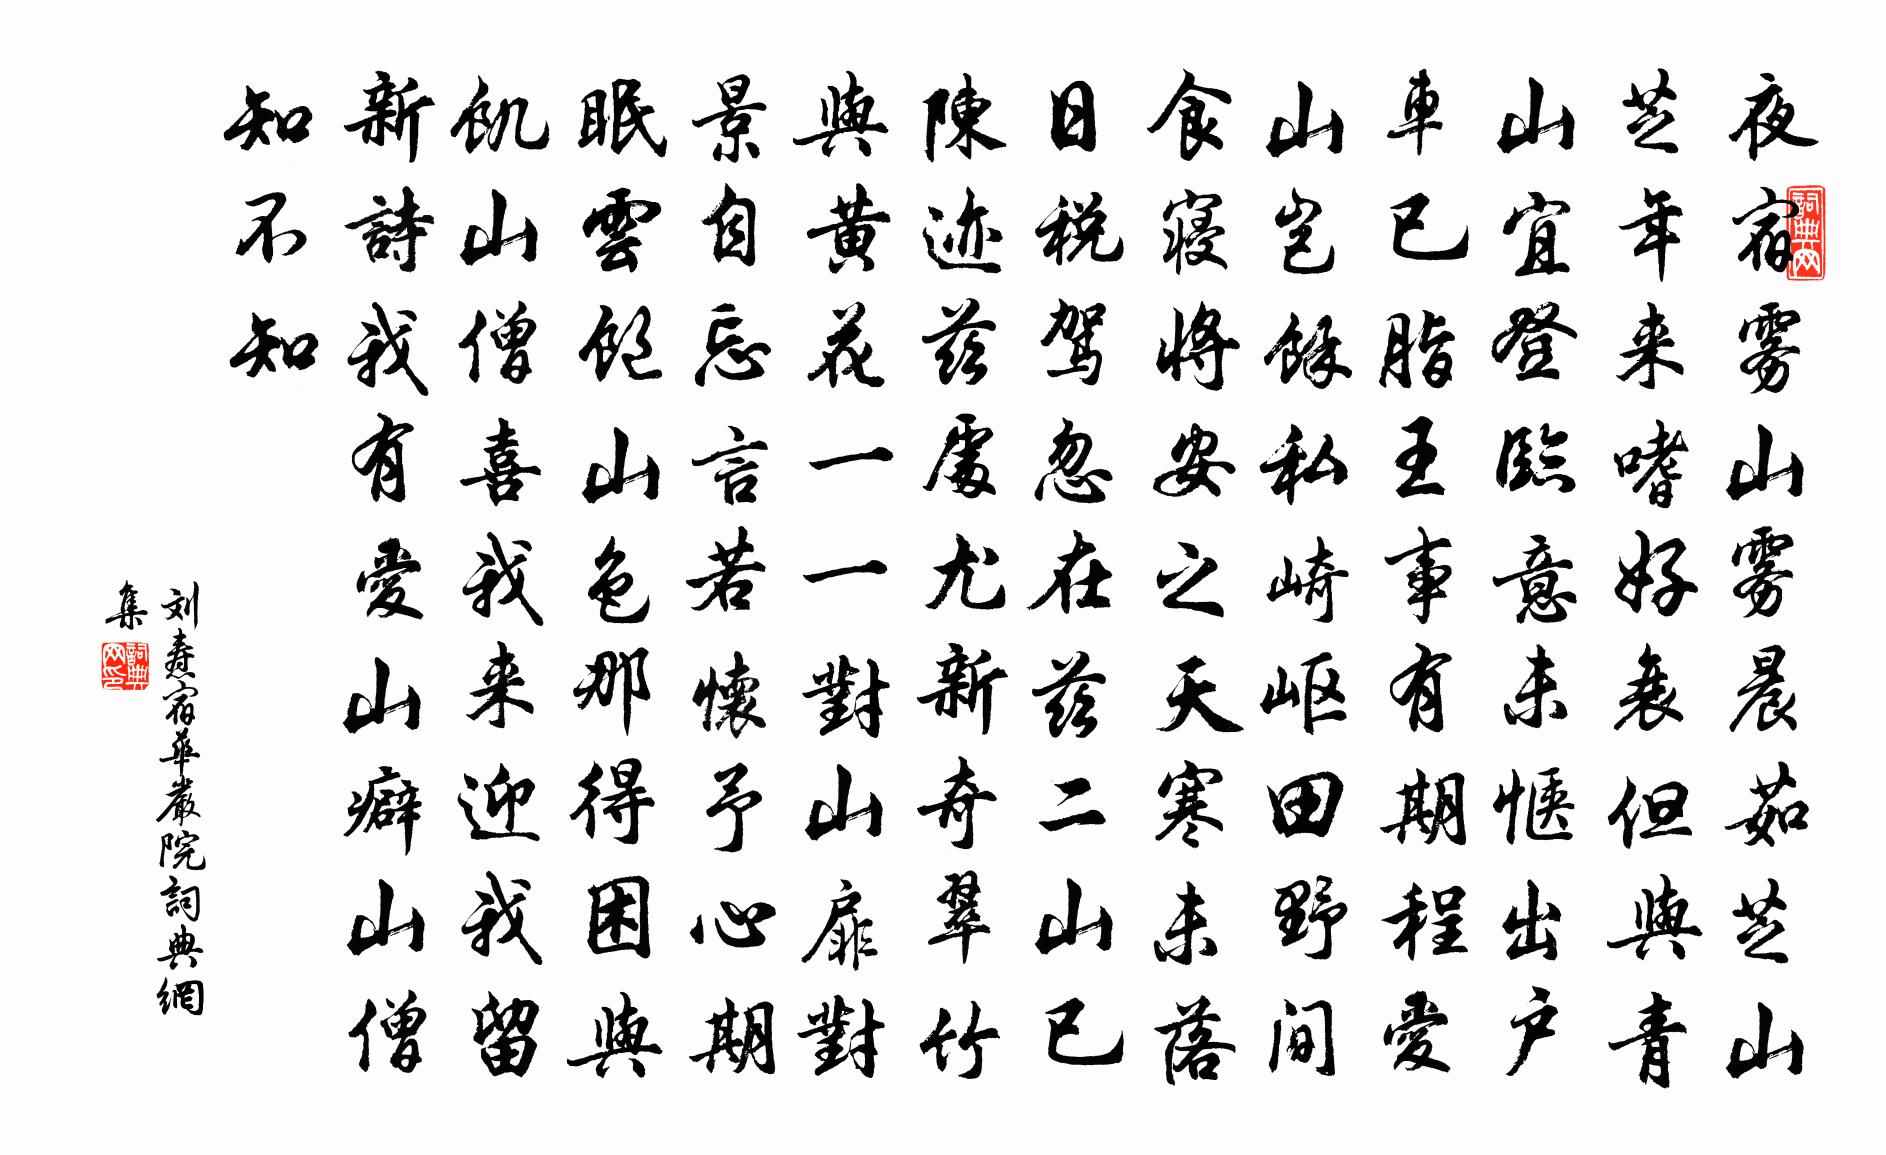 夜宿雾山雾晨茹芝山
芝年来嗜好衰但與青
山宜登臨意未惬出户
車已脂王事有期程愛
山岂餘私崎岖田野间
食寝将安之天寒未落
日税驾忽在兹二山已
陳迹兹處尤新奇翠竹
與黄花一一對山扉對
景自忘言若懷予心期
眠雲飽山色那得困與
飢山僧喜我来迎我留
新詩我有愛山癖山僧
知不知
刘焘宿華嚴院詞典網
集
詞典网
詞典网印